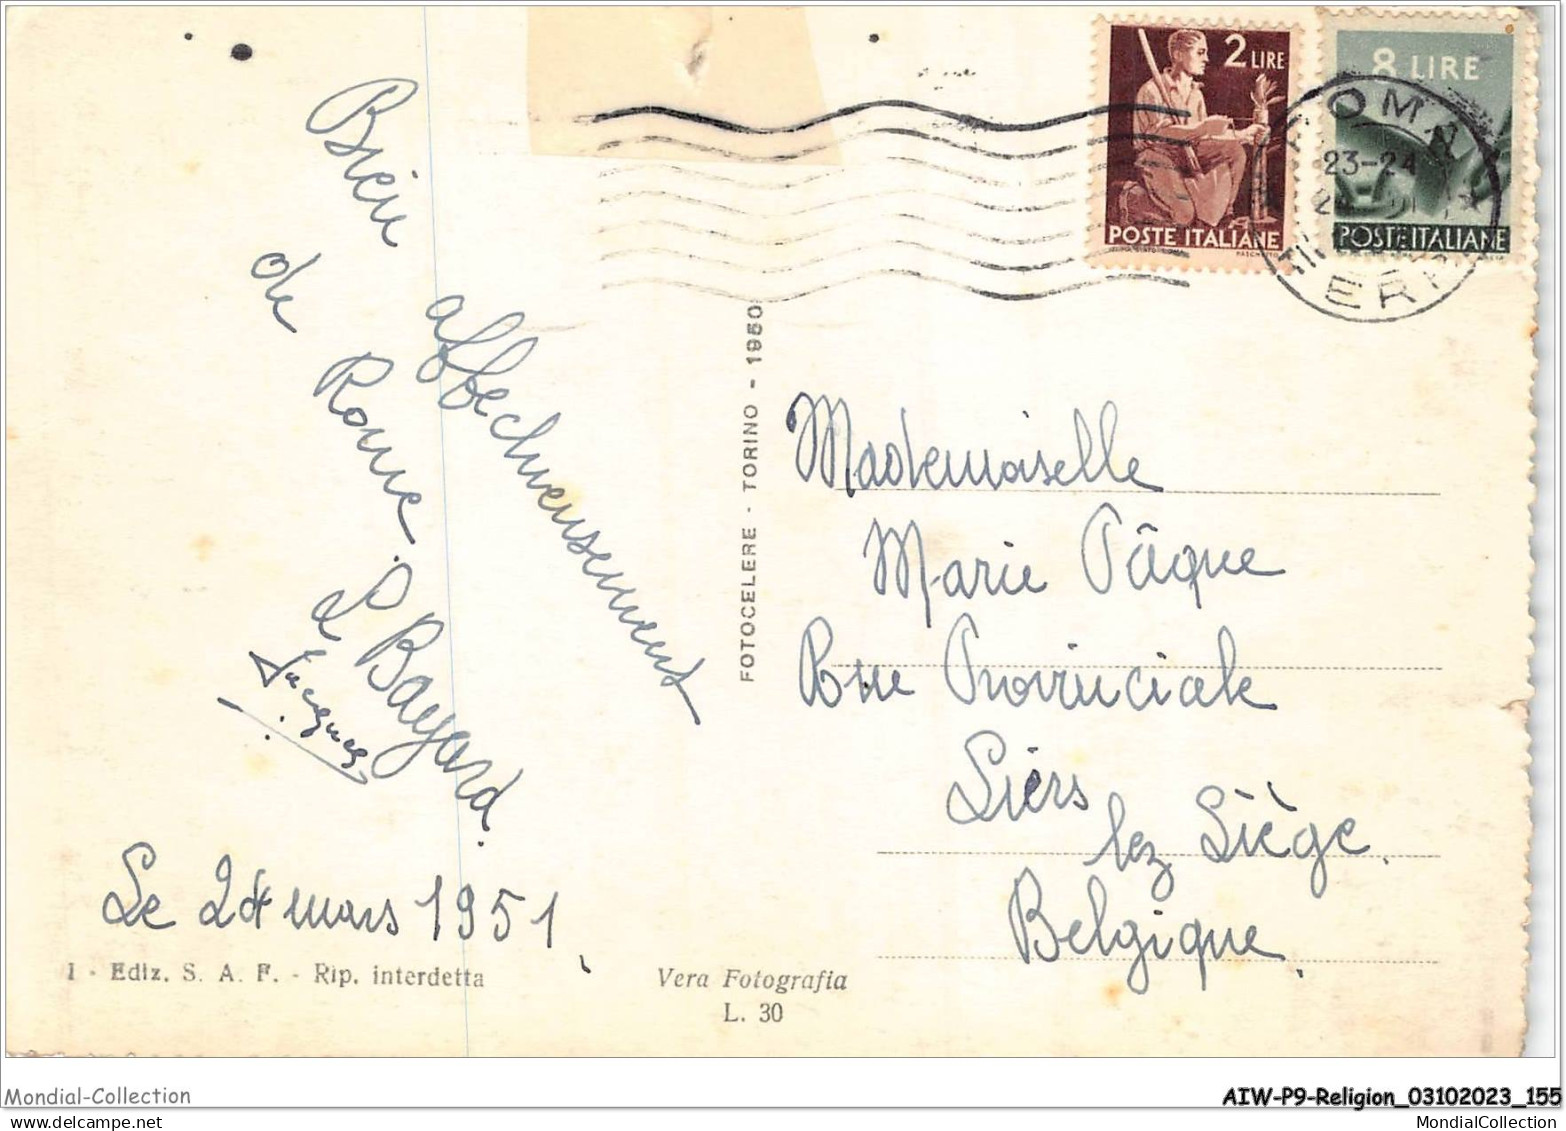 Bien affectueusement
de Rome.
L. Bayard.
Jacques
Le 24 mars 1951.
1 - Ediz. S. A. F. - Rip. interdetta
Vera Fotografia
L. 30
FOTOCELERE - TORINO - 1950
2 LIRE
POSTE ITALIANE
8 LIRE
POSTE ITALIANE
ROMA
23-24
Mademoiselle
Marie Pâque
Rue Provinciale
Liers
lez Liège.
Belgique.
Mondial-Collection
AIW-P9-Religion_03102023_155
MondialCollection